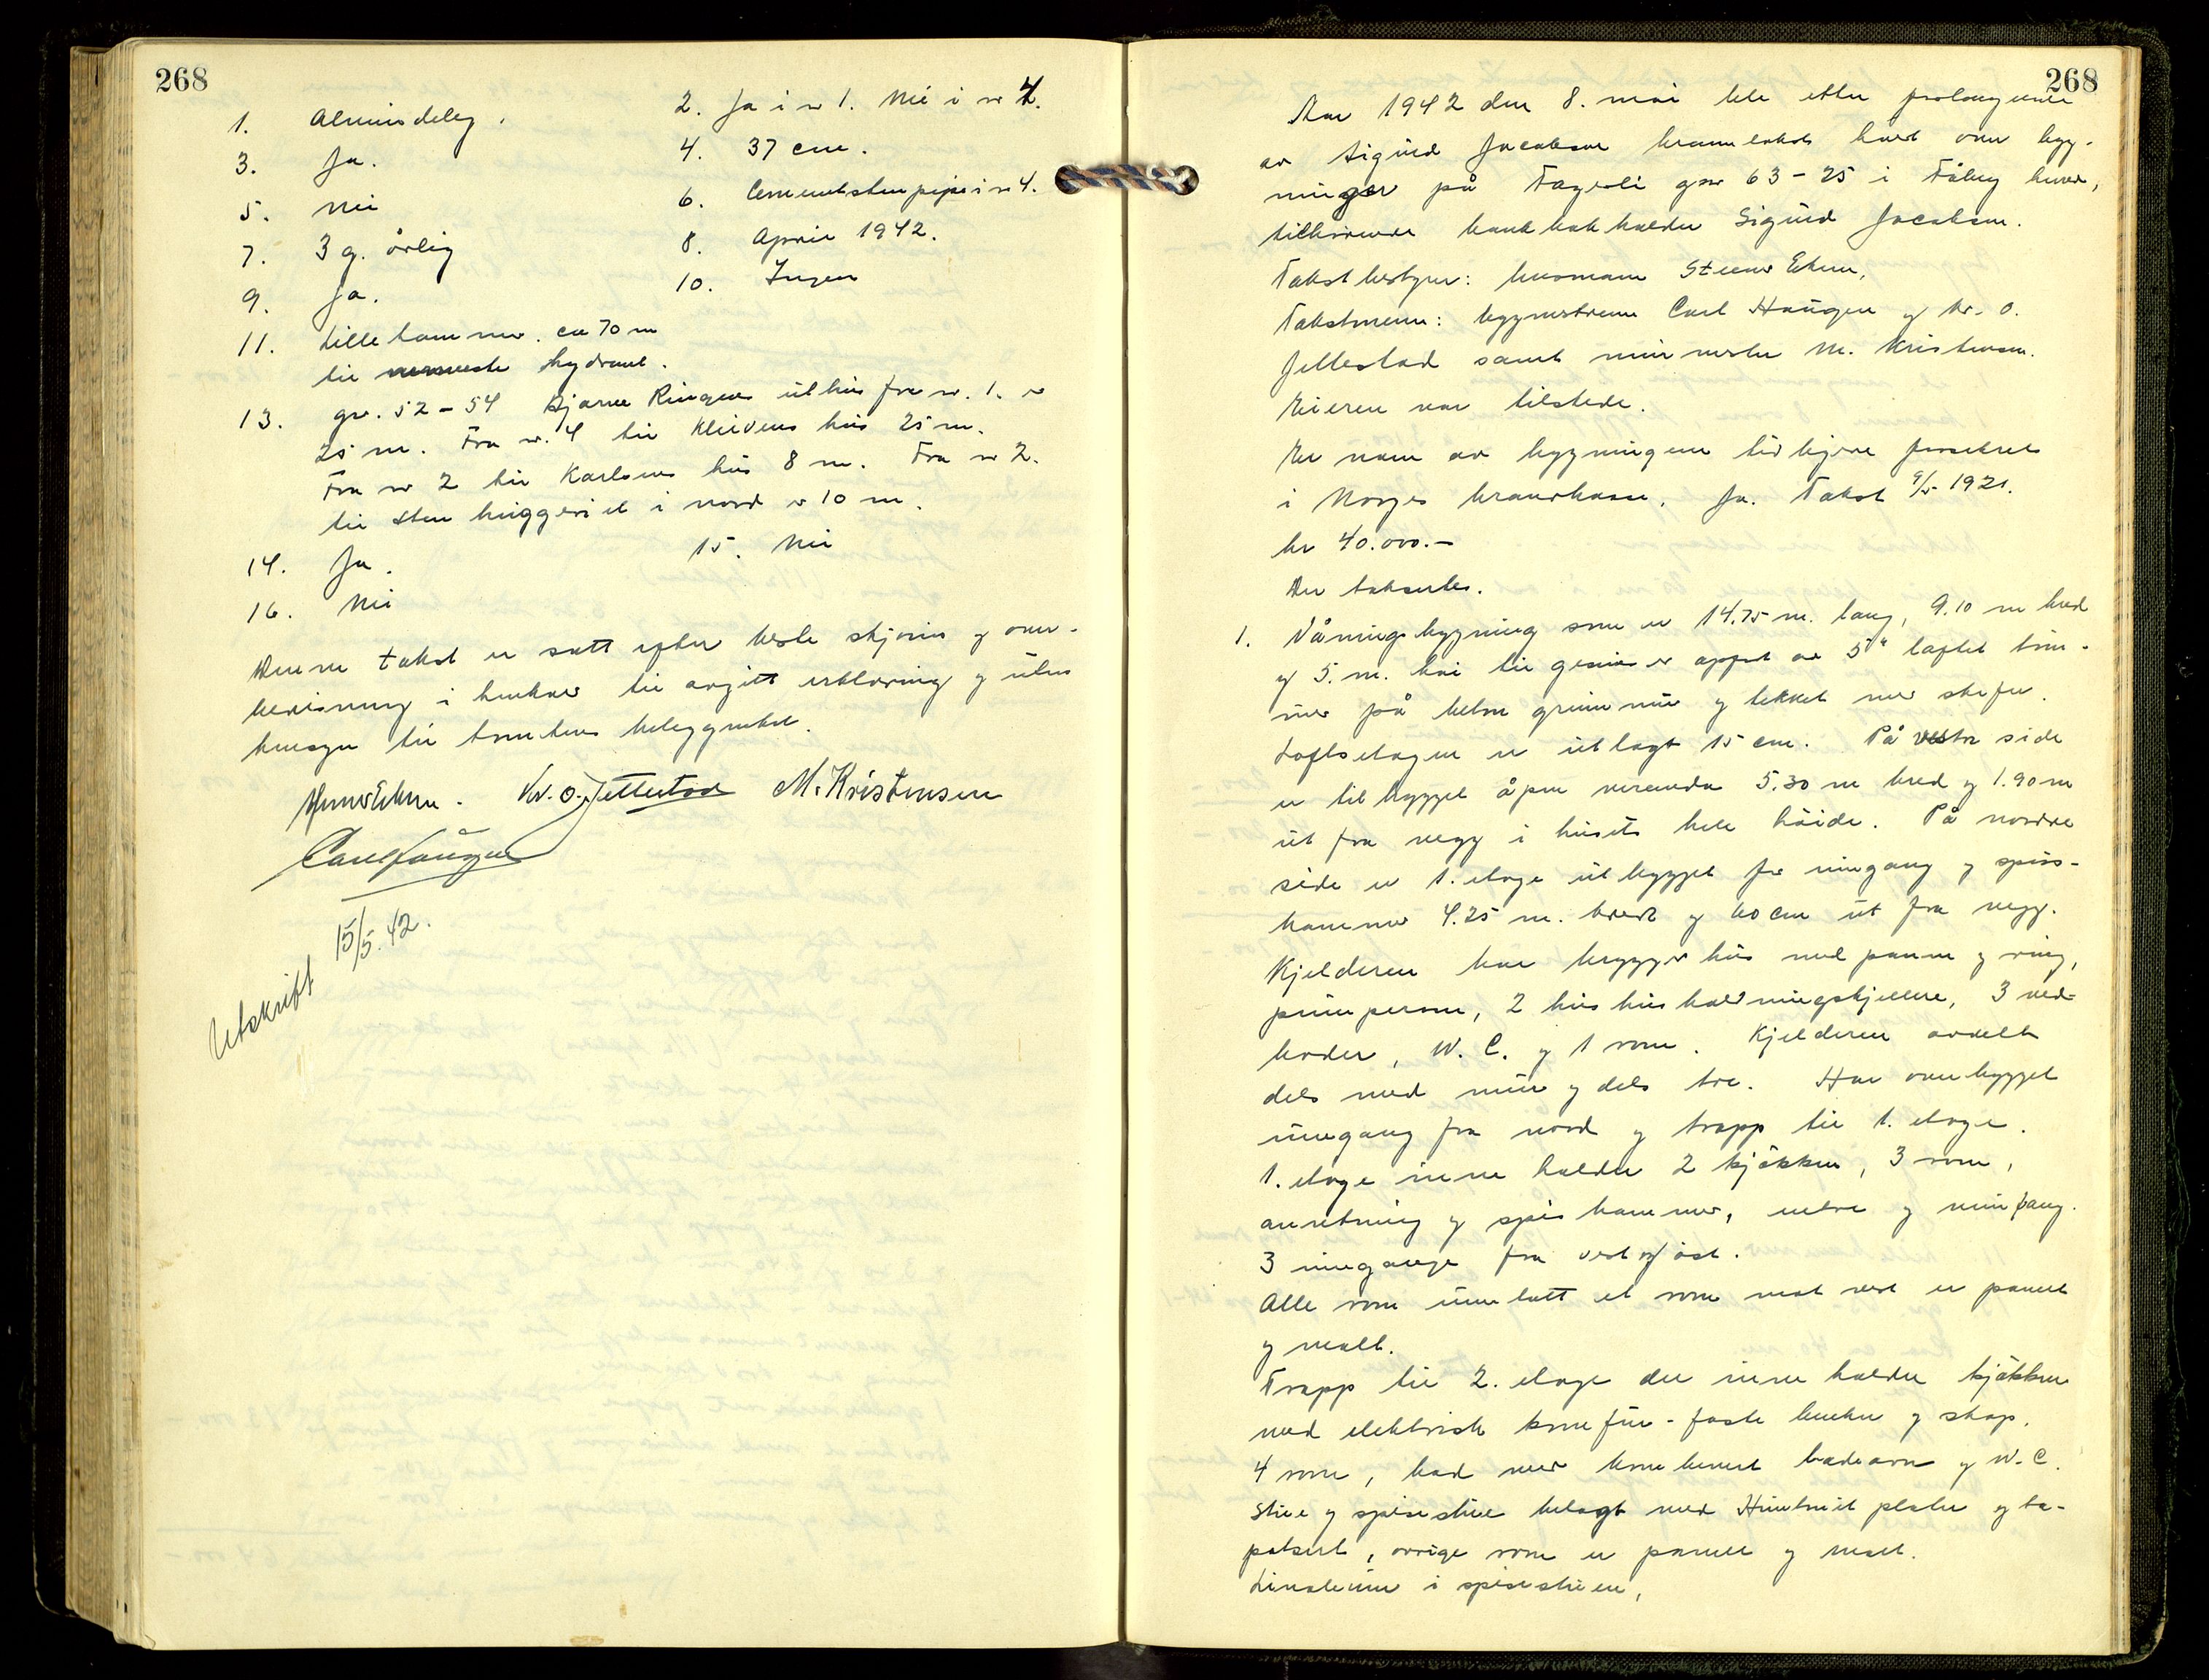 268
1. Almindelig.
2. Ja i nr 1. Nei i nr 4.
3. Ja.
4. 37 cm.
5. Nei
6. Cementstenpipe i nr 4.
7. 3 g. årlig
8. April 1942.
9. Ja.
10. Ingen
11. Lillehammer. ca 70 m
til nærmeste hydrant.
13. gnr. 52-54 Bjarne Ringens uthus fra nr. 1. er
25 m. Fra nr. 4 til Kleivens hus 25 m.
Fra nr 2 til Karlsens hus 8 m. Fra nr 2.
til stenhuggeriet i nord er 10 m.
14. Ja.
15. Nei
16. Nei
Denne takst er satt efter beste skjønn og over-
bevisning i henhold til avgitt erklæring og uten
hensyn til tomtens beliggenhet.
Steinar Ekern. Kr. O. Jetlestad M. Kristensen
Carl Haugen
Utskrift 15/5.42.
268
Aar 1942 den 8. mai ble etter forlangende
av Sigurd Jacobsen branntakst holdt over byg-
ninger på Fagerli gnr 63-25 i Fåberg herred,
tilhørende bankbokholder Sigurd Jacobsen.
Takstbestyrer: lensmann Steinar Ekern,
Takstmenn: byggmestrene Carl Haugen og Kr. O.
Jetlestad samt murmester M. Kristensen.
Eieren var tilstede.
Er noen av bygningene tidligere forsikret
i Norges brannkasse. Ja. Takst 9/5 1921.
kr 40.000.-
Der takseres.
1. Våningsbygning som er 14.75 m. lang, 9.10 m bred
og 5. m. høi til gesims er oppført av 5" laftet tøm-
mer på betong grunnmur og tekket med skifer.
Loftsetagen er utlagt 15 cm. På vestre side
er tilbygget åpen veranda 5.30 m bred og 1.90 m
ut fra vegg i husets hele høide. På nordre
side er 1. etage utbygget for inngang og spis-
kammer 4.25 m. bredt og 60 cm ut fra vegg.
Kjelderen har bryggerhus med panne og ring,
2 hus husholdningskjellere, 3 ved-
boder, W. C. og 1 rom. Kjelderen avdelt
dels med mur og dels tre. Har overbygget
inngang fra nord og trapp til 1. etage.
1. etage inneholder 2 kjøkken, 3 rom,
anretning og spiskammer, entre og vinnfang.
3 innganger fra vest og øst.
Alle rom unntatt et rom mot vest er panelt
og malt.
Trapp til 2. etage der inneholder kjøkken
med elektrisk komfur - faste benker og skap.
4 rom, bad med kombinert badeovn og W.C.
Stue og spisestue belagt med Huntonit plater og ta-
petsert, øvrige rom er panelt og malt.
Linoleum i spisestuen,